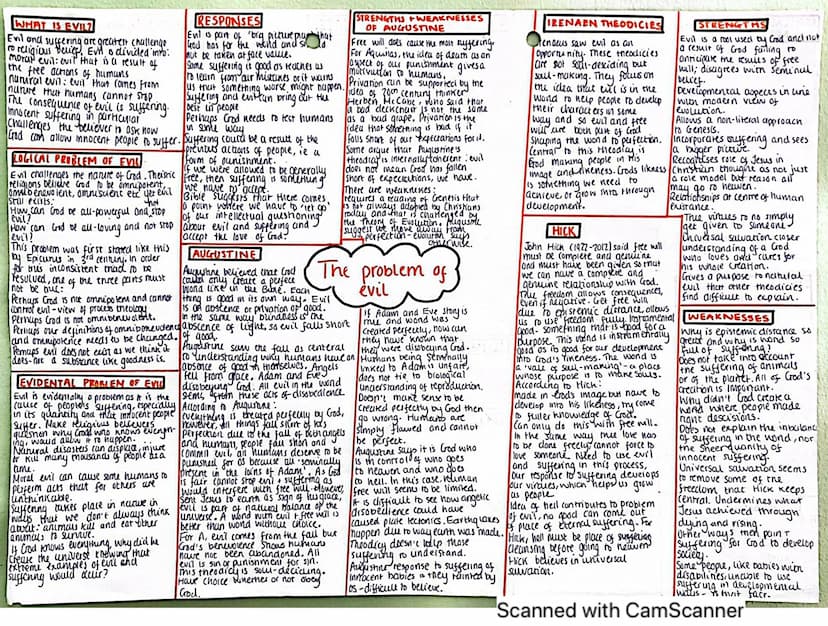 WHAT IS EVIL?
Evil and suffering are greatest challenge
to religious belief. Evil is divided into:
moral evil: evil that is a result of
the free actions of humans
natural evil: evil that comes from
nature that humans cannot stop
The consequence of evil is suffering.
innocent suffering in particular
challenges the believer to ask how
God can allow innocent people to suffer.
LOGICAL PROBLEM OF EVIL
Evil challenges the nature of God. Theistic
religions believe God to be omnipotent,
omnibenevolent, omniscient etc yet evil
still exists:
How can God be all-powerful and not stop
evil?
How can God be all-loving and not stop
evil?
This problem was first stated like this
by Epicurus in 3rd century. In order
for this inconsistent triad to be
resolved, one of the three parts must
not be true:
Perhaps God is not omnipotent and cannot
control evil - view of process theology
Perhaps God is not omnibenevolent.
Perhaps our definitions of omnibenevolence
and omnipotence need to be changed.
Perhaps evil does not exist as we think it
does - as a substance like goodness is.
EVIDENTIAL PROBLEM OF EVIL
Evil is evidentially a problem as it is the
cause of people's suffering, especially
in its quantity and that innocent people
suffer. Make religious believers
question why God who knows everyth-
ing, would allow it to happen.
Natural disasters can displace, injure
or kill many thousands of people at a
time.
Moral evil can cause some humans to
perform acts that for others are
unthinkable.
Suffering takes place in nature in
ways that we don't always think
about: animals kill and eat other
animals to survive.
If God knows everything, why did he
create the universe knowing that
extreme examples of evil and
suffering would occur?
RESPONSES
Evil is part of 'big picture' plan that
God has for the world and should
not be taken at face value.
Some suffering is good as enables us
to learn from our mistakes or it warns
us that something worse might happen.
Suffering and evil can bring out the
best in people
Perhaps God needs to test humans
in some way
Suffering could be a result of the
previous actions of people, i.e a
form of punishment.
If we were allowed to be generally
free, then suffering is something
we have to accept.
Bible suggests that there comes
a point where we have to 'let go'
of our intellectual questioning
about evil and suffering and
accept the love of God.
AUGUSTINE
Augustine believed that God
could only create a perfect
world like in the Bible. Each
thing is good in its own way. Evil
is an absence or privation of good.
in the same way blindness is the
absence of light, so evil falls short
of good.
Augustine saw the fall as central
to understanding why humans have an
absence of good in themselves. Angels
fell from grace. Adam and Eve
disobeyed God. All evil in the world
stems from these acts of disobedience
According to Augustine:
Everything is created perfectly by God,
however, all things fall short of God's
perfection due to the fall of both angels
and humans, people fall short and
commit evil, all humans deserve to be
punished for as because all 'seminally
present in the loins of Adam'. As God
is fair cannot stop evil & suffering as
would interfere with free will. However,
sent Jesus to earth as sign of his grace,
evil is part of natural balance of the
universe. A world with evil & free will is
better than world without choice.
For A, evil comes from the fall but
God's benevolence shows humans
have not been abandoned. All
evil is sin or punishment for sin.
This theodicy is soul-deciding.
Have choice whether or not obey
God.
STRENGTHS + WEAKNESSES
OF AUGUSTINE
Free will does cause the man suffering.
For Aquinas, the idea of death as an
aspect of our punishment gives a
motivation to humans.
Privation can be supported by the
idea of 20th century thinker
Herbert McCabe, who said that
a bad deckchair is not the same
as a bad grape. Privation is the
idea that something is bad if it
falls short of our expectations for it.
Some argue that Augustine's
theodicy is internally coherent: evil
does not mean God has fallen
short of expectations, we have.
There are weaknesses:
requires a reading of Genesis that
is not always adopted by Christians
today and that is challenged by
the Theory of Evolution. Augustine
suggest we move away from
perfection - evolution says
otherwise.
The problem of
evil
If Adam and Eve story is
true and world was
created perfectly, how can
they have known that
they were disobeying God.
Humans being seminally
linked to Adam is unfair,
does not tie to biological
understanding of reproduction.
Doesn't make sense to be
created perfectly by God then
go wrong. Humans are
simply flawed and cannot
be perfect.
Augustine says it is God who
is in control of who goes
to heaven and who goes
to hell. In this case, human
free will seems to be limited.
It is difficult to see how angelic
disobedience could have
caused plate tectonics. Earthquakes
happen due to way earth was made.
Theodicy doesn't help those
suffering to understand.
Augustine response to suffering of
innocent babies is they tainted by
OS - difficult to believe.
IRENAEN THEODICIES
Irenaeus saw evil as an
opportunity. These theodicies
are not soul-deciding but
soul-making. They focus on
the idea that evil is in the
world to help people to develop
their characters in some
way and so evil and free
will are both part of God
shaping the world to perfection.
Central to this theodicy is
God making people in His
image and likeness. God's likeness
is something we need to
achieve or grow into through
development.
HICK
John Hick (1922-2012) said free will
must be complete and genuine
and must have been given so that
we can have a complete and
genuine relationship with God.
This freedom allows consequences,
even if negative. Get free will
due to epistemic distance, allows
us to use freedom fully. Instrumental
good - something that is good for a
purpose. This world is instrumentally
good as its good for our development
into God's likeness. The world is
a 'vale of soul-making' - a place
whose purpose is to make souls.
According to Hick:
made in God's image but have to
develop into his likeness, try come
to fuller knowledge of God.
Can only do this with free will.
In the same way true love has
to be done freely/cannot force to
love someone. Need to use evil
and suffering in this process,
our response to suffering develops
our virtues, which helps us grow
as people.
Idea of hell contributes to problem
of evil, no good can come out
of place of eternal suffering. For
Hick, hell must be place of suffering
cleansing before going to heaven.
Hick believes in universal
salvation.
STRENGTHS
Evil is not used by God and not
a result of God failing to
anticipate the results of free
will, disagrees with seminal
belief.
Developmental aspects in line
with modern view of
evolution.
Allows a non-literal approach
to Genesis.
Incorporates suffering and sees
a bigger picture.
Recognises role of Jesus in
Christian thought as not just
a role model but reason all
may go to heaven.
Relationships at centre of human
existence.
True virtues to us simply
get given to someone
Universal salvation closer
understanding of a God
who loves and cares for
his whole creation.
Gives a purpose to natural
evil that other theodicies
find difficult to explain.
WEAKNESSES
Why is epistemic distance so
great and why is world so
full of suffering?
Does not take into account
the suffering of animals
or of the planet. All of God's
creation is important.
Why didn't God create a
world where people made
right decisions?
Does not explain the imbalance
of suffering in the world, nor
the sheer quantity of
innocent suffering.
Universal salvation seems
to remove some of the
freedom that Hick keeps
central. Undermines what
Jesus achieved through
dying and rising.
Other ways than
suffering for God to develop
society.
Some people, like babies with
disabilities unable to use
suffering in developmental
ways - is that fair.
Scanned with CamScanner